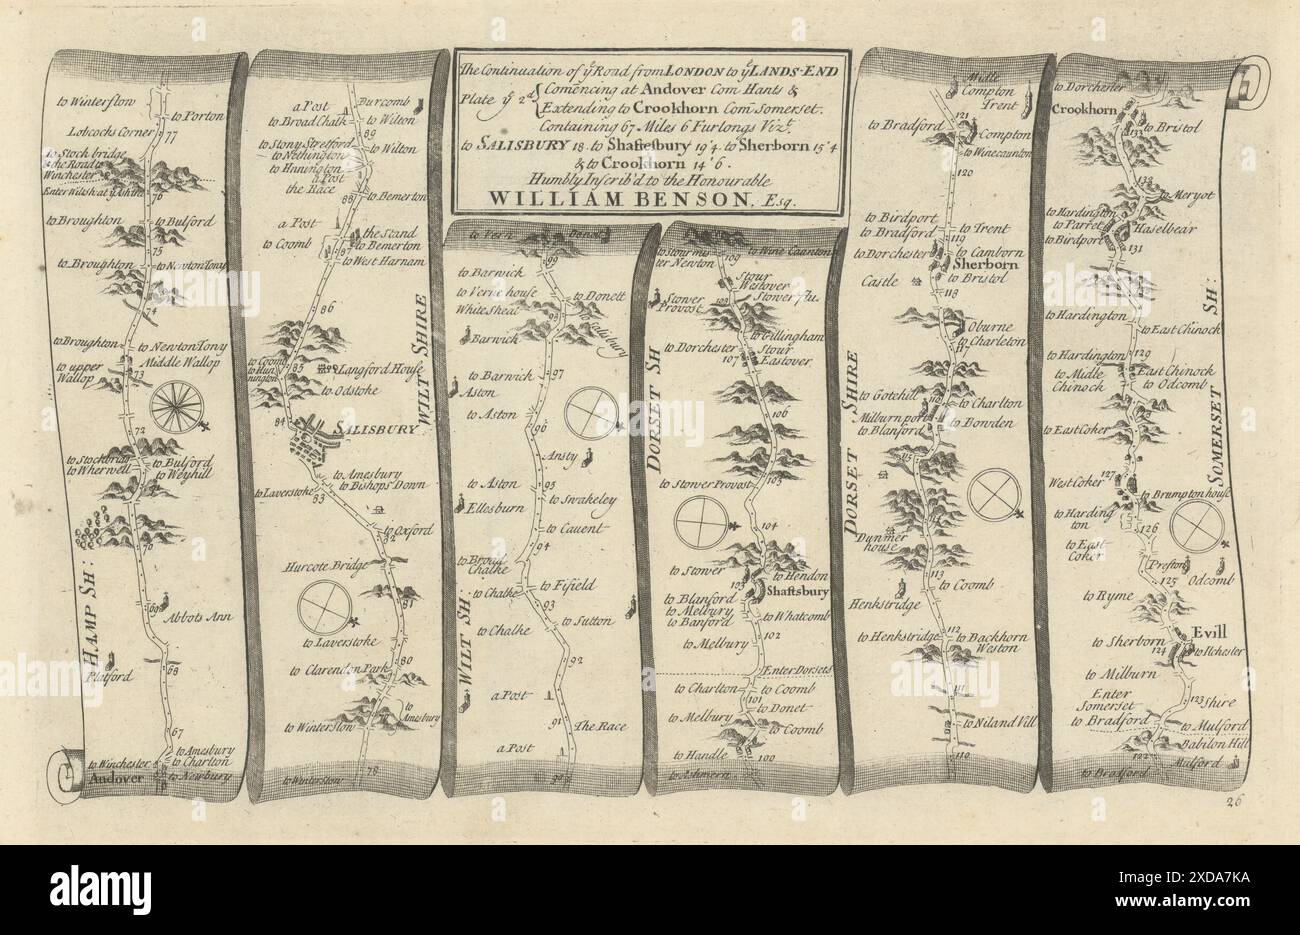 The Continuation of yͤ Road from LONDON to yͤ LANDS-END
Plate yͤ 2ᵈ
Comencing at Andover Com Hants &
Extending to Crookhorn Com Somerset.
Containing 67 Miles 6 Furlongs Vizᵗ.
to SALISBURY 18. to Shaftesbury 19'4 to Sherborn 15'4
& to Crookhorn 14'6.
Humbly Inscrib'd to the Honourable
WILLIAM BENSON, Esq.
to Winterslow
to Porton
Lobcocks Corner
77
to Stockbridge
& the Road to
Winchester
Enter Wiltsh at yͤ Ashire
76
to Broughton
to Bulford
75
to Broughton
to Newton Tony
74
to Broughton
to Newton Tony
Middle Wallop
to upper
Wallop
73
72
to Stockbridg
to Wherwell
to Bulford
to Weyhill
70
69
Abbots Ann
HAMP SH:
Platford
68
67
to Amesbury
to Winchester
to Charlton
Andover
to Newbury
a Post
Burcomb
to Broad Chalk
to Wilton
89
to Stony Stretford
to Nethington
to Hunnington
to Wilton
a Post
the Race
88
to Bemerton
a Post
the Stand
to Coomb
to Bemerton
87
to West Harnam
86
WILT SHIRE
to Coomb
to Hun
nington
85
Langford House
to Odstoke
84
SALISBURY
to Amesbury
to Bishops Down
to Laverstoke
83
to Oxford
82
Hurcote Bridge
81
to Laverstoke
80
to Clarendon Park
to Amesbury
to Winterslow
to Winterslow
78
to Vern
Donet
99
to Barwick
to Verne house
to Donett
White Sheat
98
to Salisbury
Barwick
to Barwick
97
Aston
to Aston
96
Ansty
to Aston
95
to Swakeley
Ellesburn
to Cauent
94
to Broad
Chalke
to Chalke
to Fifield
93
to Sutton
to Chalke
WILT SH:
92
a Post
91
The Race
a Post
90
to Stourmis
ter Newton
to Wine Caunton
109
Stour
Westover
Stower flu.
Stower
Provost
108
to Gillingham
to Dorchester
Stour
Eastover
107
DORSET SH
106
105
to Stower Provost
104
to Stower
to Hendon
103
Shaftsbury
to Blanford
to Melbury
to Banford
to Whatcomb
102
to Melbury
Enter Dorsets
to Charlton
to Coomb
101
to Donet
to Melbury
to Coomb
to Handle
100
to Ashmern
Midle
Compton
Trent
to Bradford
121
Compton
to Winecaunton
120
to Birdport
to Bradford
to Trent
119
to Dorchester
to Camborn
Sherborn
to Bristol
Castle
118
Oburne
to Charleton
117
DORSET SHIRE
to Gotehill
to Charlton
116
Milburn port
to Blanford
to Bowden
115
Dunmer
house
113
to Coomb
Henkstridge
to Henkstridge
112
to Backhorn
Weston
111
to Niland Vill
110
to Dorchester
Crookhorn
to Bristol
133
132
to Meryot
to Hardington
to Parret
to Birdport
Haselbear
131
to Hardington
to East Chinock
to Hardington
129
to Midle
Chinock
East Chinock
to Odcomb
to East Coker
127
West Coker
to Brumpton house
to Harding
ton
126
to East
Coker
Preston
125
Odcomb
to Ryme
Evill
to Sherborn
124
to Ilchester
to Milburn
Enter
Somerset
123
Shire
to Bradford
to Mulford
Babilon Hill
122
Mulford
to Bradford
SOMERSET SH:
26
alamy
Image ID: 2XDA7KA
www.alamy.com